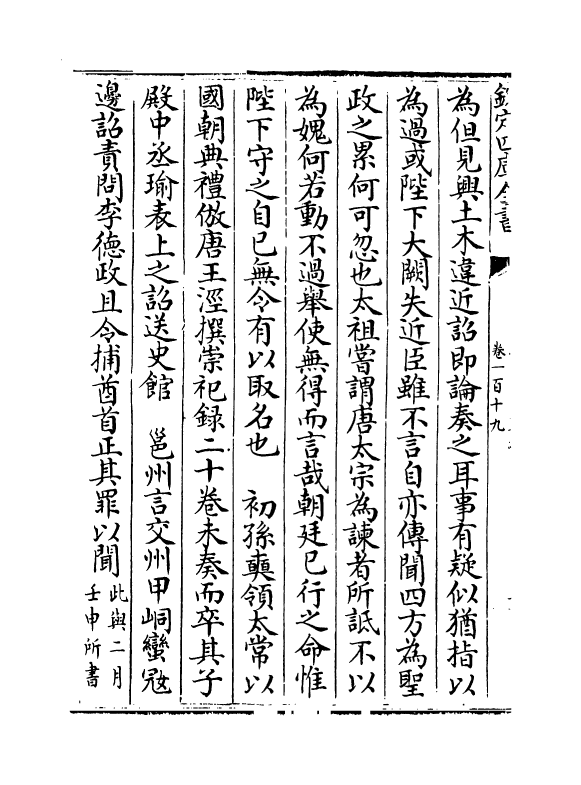 欽定四庫全書
卷一百十九
為但見興土木違近詔即論奏之耳事有疑似猶指以
為過或陛下大闕失近臣雖不言自亦傳聞四方為聖
政之累何可忽也太祖嘗謂唐太宗為諫者所詆不以
為媿何若動不過舉使無得而言哉朝廷已行之命惟
陛下守之自已無令有以取名也　初孫奭領太常以
國朝典禮倣唐王涇撰崇祀録二十卷未奏而卒其子
殿中丞瑜表上之詔送史館　邕州言交州甲峒蠻冦
邊詔責問李德政且令捕酋首正其罪以聞此與二月
壬申所書